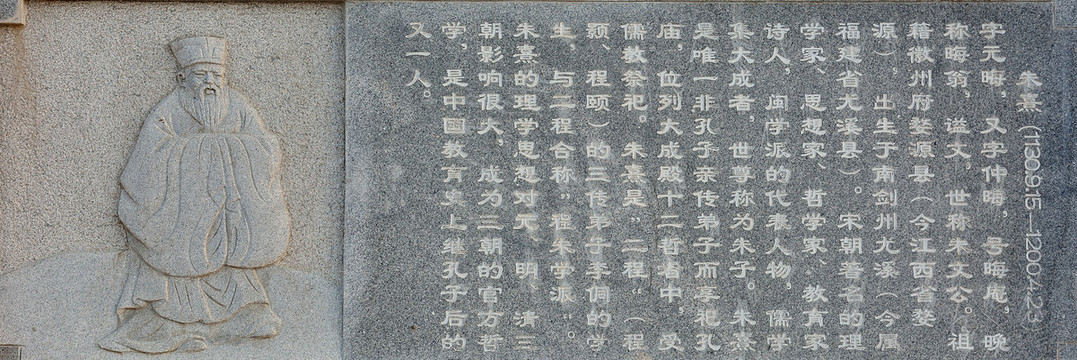 朱熹（1130.9.15—1200.4.23）
字元晦，又字仲晦，号晦庵，晚
称晦翁，谥文，世称朱文公。祖
籍徽州府婺源县（今江西省婺
源），出生于南剑州尤溪（今属
福建省尤溪县）。宋朝著名的理
学家、思想家、哲学家、教育家、
诗人，闽学派的代表人物，儒学
集大成者，世尊称为朱子。朱熹
是唯一非孔子亲传弟子而享祀孔
庙，位列大成殿十二哲者中，受
儒教祭祀。朱熹是“二程“（程
颢、程颐）的三传弟子李侗的学
生，与二程合称“程朱学派“。
朱熹的理学思想对元、明、清三
朝影响很大，成为三朝的官方哲
学，是中国教育史上继孔子后的
又一人。